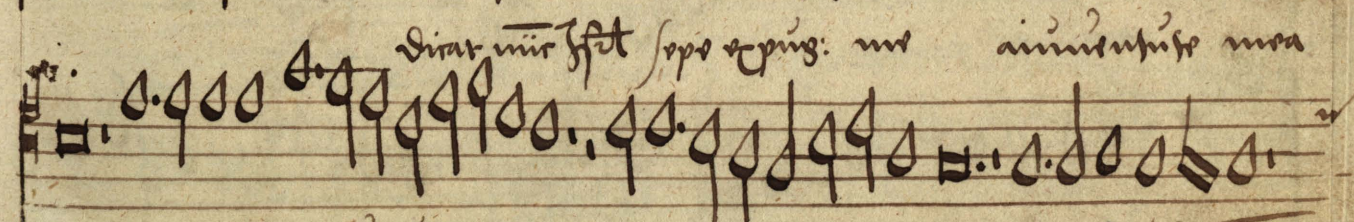 dicat nūc Isrl sepe expug: me aiuuentute mea